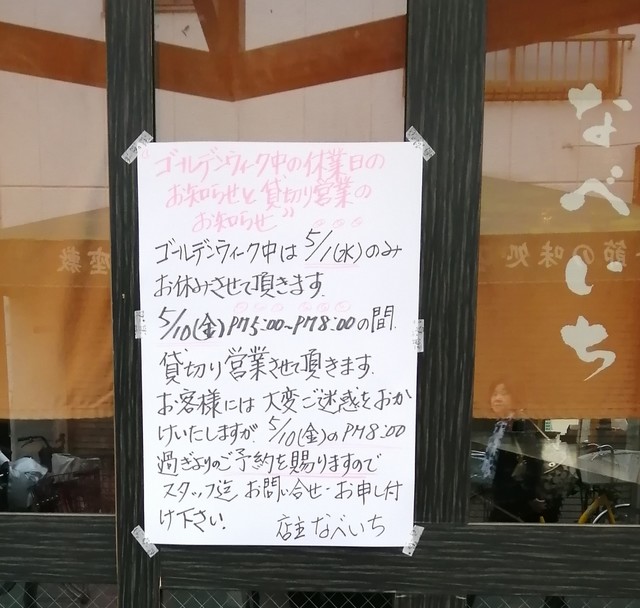 ゴールデンウィーク中の休業日の
お知らせと貸切り営業の
お知らせ"
ゴールデンウィーク中は5/1(水)のみ
お休みさせて頂きます.
5/10(金)PM5:00~PM8:00の間.
貸切り営業させて頂きます.
お客様には大変ご迷惑をおか
けいたしますが.5/10(金)のPM8:00
過ぎよりのご予約を賜りますので
スタッフ迄お問い合せ・お申し付
け下さい!
店主なべいち
なべいち
節の味処
座敷